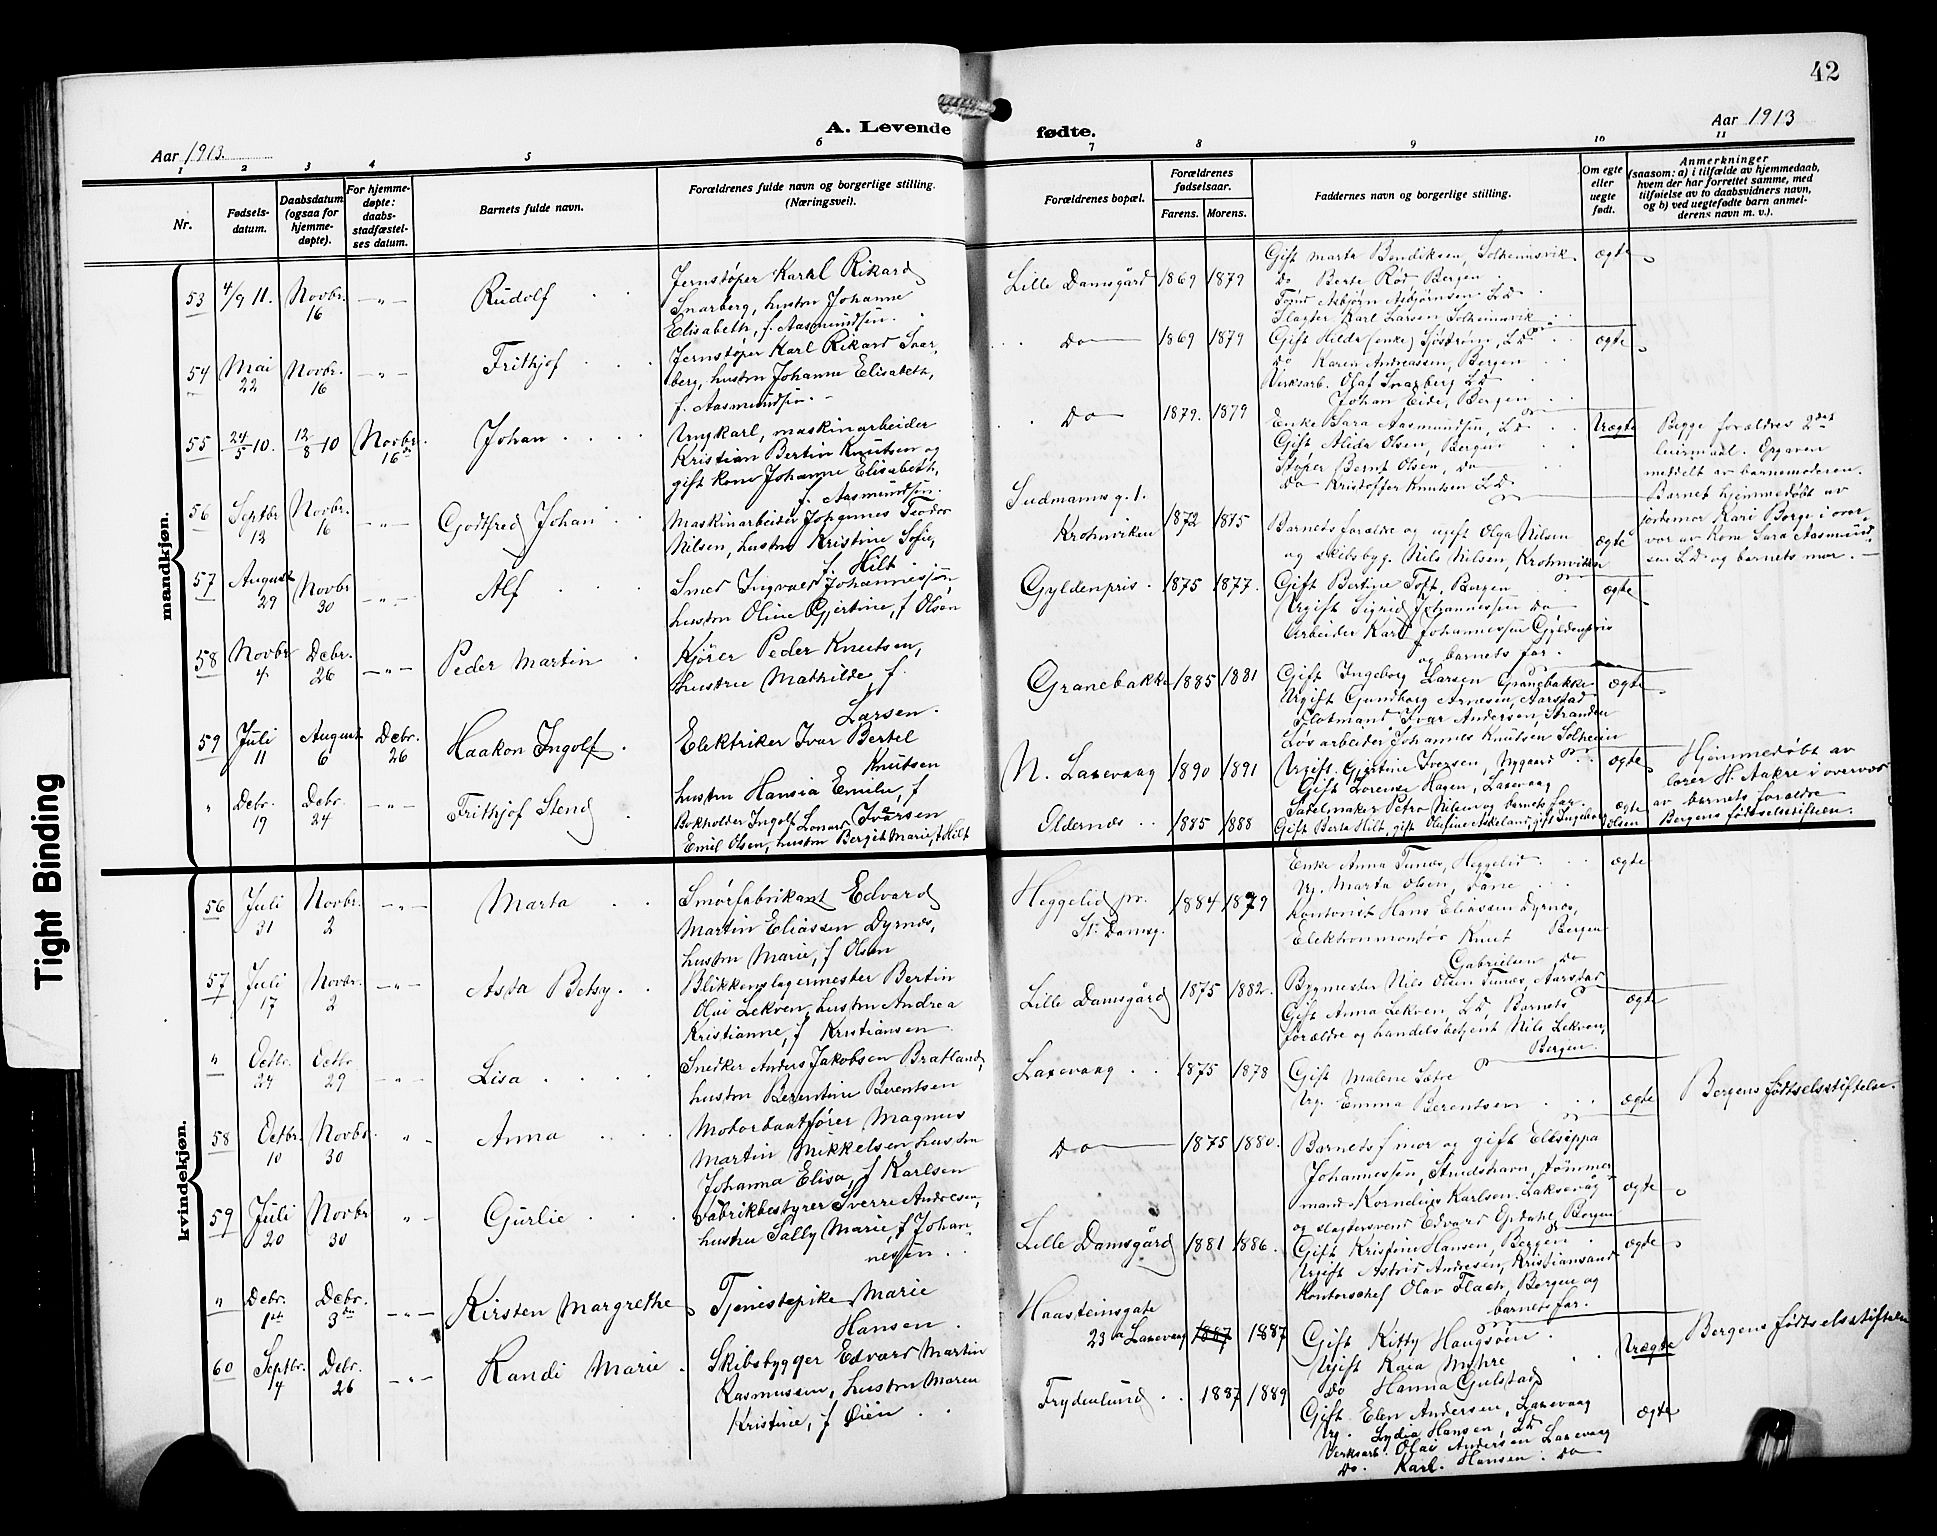 42
A. Levende fødte.
Aar 1913.
Aar 1913
1 2 3 4 5 6 7 8 9 10 11
Nr.
Fødsels-
datum.
Daabsdatum
(ogsaa for
hjemme-
døpte).
For hjemme-
døpte:
daabs-
stadfæstel-
ses datum.
Barnets fulde navn.
Forældrenes fulde navn og borgerlige stilling.
(Næringsvei).
Forældrenes bopæl.
Forældrenes
fødselsaar.
Farens. Morens.
Faddernes navn og borgerlige stilling.
Om egte
eller
uegte
født.
Anmerkninger
(saasom: a) i tilfælde av hjemmedaab,
hvem der har forrettet samme, med
tilføielse av to daabsvidners navn,
og b) ved uegtefødte barn anmel-
derens navn m. v.).
Tight Binding
mandkjøn.
53 4/9 11. Novbr. 16 -"- Rudolf
Jernstøper Karl Rikard
Snarberg, hustru Johanne
Elisabeth, f. Aasmundsen.
Lille Damsgård 1869 1879
Gift Marta Bendiksen, Solheimsvik
Do Berte Rød, Bergen
Asbjørn Asbjørnsen Ld
Slagter Karl Larsen Solheimsvik
ægte
54 Mai 22 Novbr. 16 -"- Frithjof
Jernstøper Karl Rikard Snar-
berg, hustru Johanne Elisabeth,
f. Aasmundsen.
Do 1869 1879
Gift Hilda (enke) Sjøstrøm, Ld
Do Karen Andreassen, Bergen
Verksarb. Olaf Snarberg Ld
Johan Eide, Bergen
ægte
55 24/5 10. 12/8 10 Novbr. 16de Johan
Ungkarl, maskinarbeider
Kristian Bertin Knutsen og
gift kone Johanne Elisabeth,
f. Aasmundsen.
Do 1879. 1879
Enke Sara Aasmundsen, Ld
Gift Alida Olsen, Bergen
Støper Bernt Olsen, do
Do Kristoffer Knutsen Ld
Uægte
Begge forældres 2det
leiermaal. Opgaven
meddelt av barnemoderen.
Barnet hjemmedøbt av
jordemor Kari Borge i over-
vær av Kone Sara Aasmund-
sen Ld og barnets mor.
56 Septbr 13 Novbr. 16 -"- Godtfred Johan
Maskinarbeider Johannes Teodor
Nilsen, hustru Kristine Sofie,
f. Hilt
Sudmannsg. 1.
Krohnviken 1872 1875
Barnets forældre og ugift Olga Nilsen
og skibsbyg. Nils Nilsen, Krohnviken
ægte
57 August 29 Novbr 30 -"- Alf
Smed Ingvald Johannessen,
hustru Oline Gjertine, f Olsen
Gyldenpris 1875 1877.
Gift Bertine Toft, Bergen
Ugift Sigrid Johannessen Do
Arbeider Karl Johannessen Gyldenpris
og barnets far.
ægte
58 Novbr 4 Debr. 26 -"- Peder Martin
Kjører Peder Knutsen,
hustru Mathilde, f.
Larsen.
Granebakke 1885 1881
Gift Ingeborg Larsen Granebakke
Ugift Gundborg Arnesen, Aarstad
Flotmand Ivar Andersen, Stranden
Løsarbeider Johannes Knutsen Solheim
ægte
59 Juli 11 August 6 Debr. 26 Haakon Ingolf
Elektriker Ivar Bertel
Knutsen
hustru Hansia Emilie, f
Iversen
N. Laxevaag 1890 1891
Ugift Gjertine Iversen, Nygaard
Gift Lorense Hagen, Laxevaag
Salmaker Petro Nilsen og barnets far.
ægte
Hjemmedøbt av
lærer H. Aakre i overvær
av barnets forældre
" Debr. 19 Debr. 24 -"- Frithjof Stend
Bokholder Ingolf Lonard
Emil Olsen, hustru Bergit Marie, f Hilt
Oldernæs 1885 1888
Gift Berta Hilt, gift Olufine Askeland, gift Ingeborg Olsen
ægte
Bergens fødselsstiftelse.
kvindekjøn.
56 Juli 31 Novbr. 2 -"- Marta
Smørfabrikant Edvard
Martin Eliassen Dyrnes,
hustru Marie, f Olsen
Heggelid pr.
St. Damsg. 1884 1879
Enke Anna Tunes, Heggelid
Ug. Marta Olsen, Fane
Kontorist Hans Eliassen Dyrnes,
Bergen
Elektromontør Knut
Gabrielsen, do
ægte
57 Juli 17 Novbr. 2 -"- Asta Betsy.
Blikkenslagermester Bertin
Olai Lekven, hustru Andrea
Kristianne, f Kristiansen
Lille Damsgård 1875 1882.
Bygmester Nils Olsen Tunes, Aarstad
Gift Anna Lekven, Ld, Barnets
forældre og handelsbetjent Nils Lekven,
Bergen.
ægte
" Octbr. 27 Octbr 29 -"- Lisa
Snedker Anders Jakobsen Bratland,
hustru Berentine Berentsen
Laxevaag 1875 1878
Gift Malene Sætre
Ug. Emma Berentsen
ægte
Bergens fødselsstiftelse.
58 Octbr. 10 Novbr. 30 " - Anna
Motorbaatfører Magnus
Martin Mikkelsen hustru
Johanna Elisa, f Karlsen
Do 1875 1880.
Barnets mor og gift Ellseppa
Johannessen, Strudshavn, tømmer-
mand Kornelius Karlsen. Laksevåg
og slagtersvend Edvard Epdahl, Bergen
ægte
59 Juli 20 Novbr 30 " - Gurlie
Fabrikbestyrer Sverre Andresen,
hustru Sally Marie, f Johan-
nesen
Lille Damsgård 1881 1886.
Gift Kristine Hansen, Bergen
Ugift Astrid Andresen, Kristiansand
Kontorchef Olav Flach, Bergen og
barnets far.
ægte
" Debr. 1ste Debr. 3die -"- Kirsten Margrethe
Tjenestepike Marie
Hansen.
Haasteinsgate
23a Laxevaag 1887 1887
Gift Kitty Haugsøen
Ugift Kaia Myhre
do Hanna Gulstad
Uægte
Bergens fødselsstiftelse
60 Septbr. 4 Debr. 26 -"- Randi Marie
Skibsbygger Edvard Martin
Rasmussen, hustru Maren
Kristine, f Øien
Frydenlund 1887 1889
Gift. Elen Andersen, Laxevaag
Ug. Lydia Hansen, Ld
Verksarb. Olai Andersen Laxevaag
Do. Karl. Hansen. do
ægte